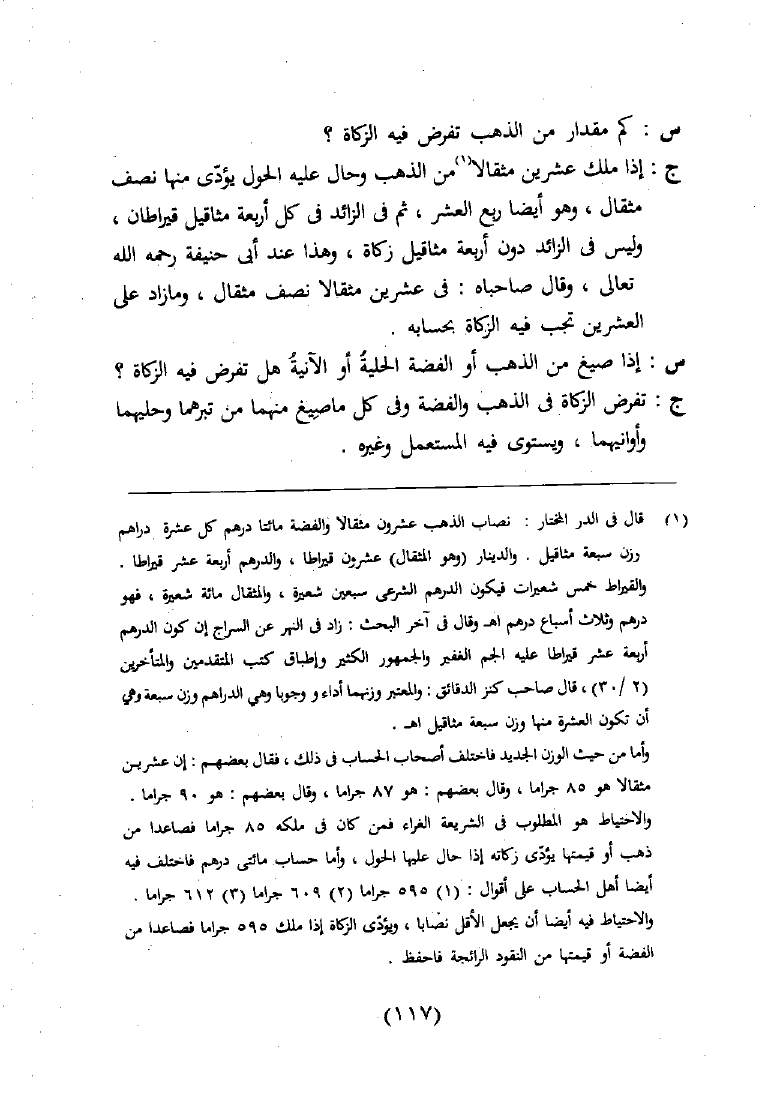 س : كم مقدار من الذهب تفرض فيه الزكاة ؟
ج : إذا ملك عشرين مثقالا(١) من الذهب وحال عليه الحول يؤدّى منها نصف
مثقال ، وهو أيضا ربع العشر ، ثم فى الزائد فى كل أربعة مثاقيل قيراطان ،
وليس فى الزائد دون أربعة مثاقيل زكاة ، وهذا عند أبى حنيفة رحمه الله
تعالى ، وقال صاحباه : فى عشرين مثقالا نصف مثقال ، ومازاد على
العشرين تجب فيه الزكاة بحسابه .
س : إذا صيغ من الذهب أو الفضة الحليةُ أو الآنيةُ هل تفرض فيه الزكاة ؟
ج : تفرض الزكاة فى الذهب والفضة وفى كل ماصيغ منهما من تبرهما وحليهما
وأوانيهما ، ويستوى فيه المستعمل وغيره .
(١) قال فى الدر المختار : نصاب الذهب عشرون مثقالا والفضة مائتا درهم كل عشرة دراهم
وزن سبعة مثاقيل . والدينار (وهو المثقال) عشرون قيراطا ، والدرهم أربعة عشر قيراطا .
والقيراط خمس شعيرات فيكون الدرهم الشرعى سبعين شعيرة ، والمثقال مائة شعيرة ، فهو
درهم وثلاث أسباع درهم اهـ وقال فى آخر البحث : زاد فى النهر عن السراج إن كون الدرهم
أربعة عشر قيراطا عليه الجم الغفير والجمهور الكثير وإطباق كتب المتقدمين والمتأخرين
(٢ /٣٠) ، قال صاحب كنز الدقائق : والمعتبر وزنهما أداء و وجوبا وهي الدراهم وزن سبعة وهي
أن تكون العشرة منها وزن سبعة مثاقيل اهـ .
وأما من حيث الوزن الجديد فاختلف أصحاب الحساب فى ذلك ، فقال بعضهم : إن عشرين
مثقالا هو ٨٥ جراما ، وقال بعضهم : هو ٨٧ جراما ، وقال بعضهم : هو ٩٠ جراما .
والاحتياط هو المطلوب فى الشريعة الغراء فمن كان فى ملكه ٨٥ جراما فصاعدا من
ذهب أو قيمتها يؤدّى زكاته إذا حال عليها الحول ، وأما حساب مائتى درهم فاختلف فيه
أيضا أهل الحساب على أقوال : (١) ٥٩٥ جراما (٢) ٦٠٩ جراما (٣) ٦١٢ جراما .
والاحتياط فيه أيضا أن يجعل الأقل نصابا ، ويؤدّى الزكاة إذا ملك ٥٩٥ جراما فصاعدا من
الفضة أو قيمتها من النقود الرائجة فاحفظ .
(١١٧)